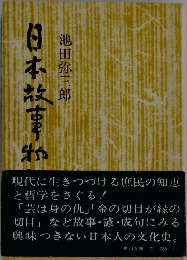 日本故事物
池田弥三郎
現代に生きつづける庶民の知恵
と哲学をさぐる!
「芸は身の仇」「金の切目が縁の
切目」など故事・諺・成句にみる
興味つきない日本人の文化史。